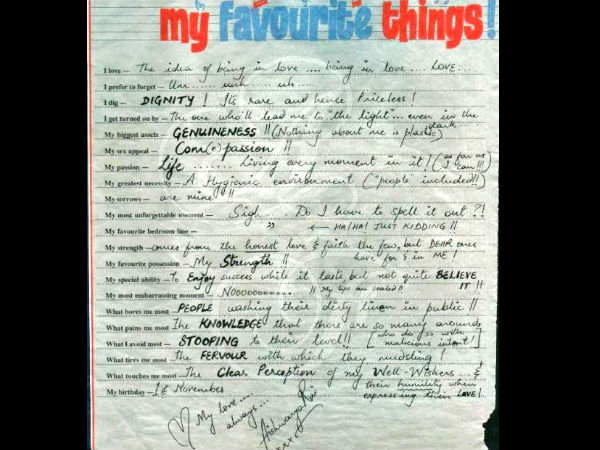 my favourite things!
I love — The idea of being in love .... being in love .... LOVE...
I prefer to forget — Um...... umh ..... uh.....
I dig — DIGNITY! Its rare and hence Priceless!
I get turned on by — The one who'll lead me to "the light"... even in the dark
My biggest assets — GENUINENESS!! (Nothing about me is plastic)
My sex appeal — Com(e)passion!!
My passion — life ........ Living every moment in it! (as far as I can!!!)
My greatest necessity — A Hygienic environment ("people" included!!)
My sorrows — are mine!!
My most unforgettable moment — Sigh... Do I have to spell it out?!
My favourite bedroom line — " ← HA! HA! JUST KIDDING!!
My strength — comes from the honest love & faith the few, but DEAR ones have for & in ME!
My favourite possession — My Strength!!
My special ability — To Enjoy success while it lasts, but not quite BELIEVE IT!!
My most embarrassing moment — Noooooooo... !! My lips are sealed!!
What bores me most — PEOPLE washing their dirty linen in public!!
What pains me most — The KNOWLEDGE that there are so many around,
What I avoid most — STOOPING to their level!! [who do so with malicious intent!]
What tires me most — the FERVOUR with which they
What touches me most — The Clear Perception of my Well-Wishers... & their humility when expressing their LOVE!
My birthday — 1st November
My love....
always...
Aishwarya Rai
xxx